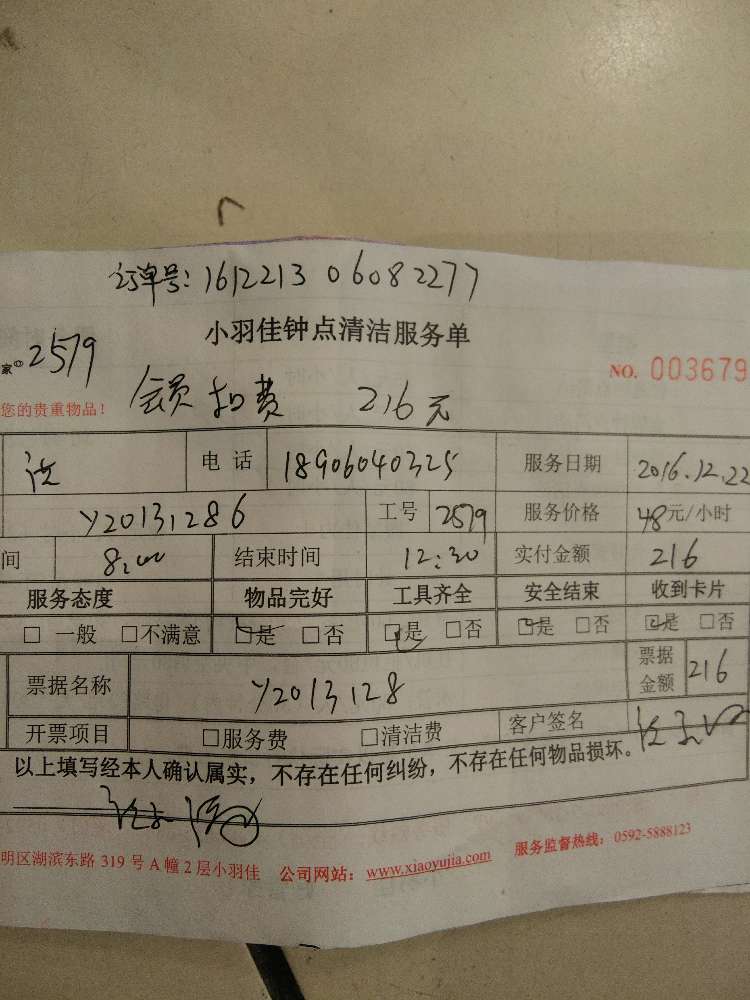 订单号: 16122130 6082277
小羽佳钟点清洁服务单
家 2579
NO. 003679
您的贵重物品! 会员扣费 216元
电话 18906040325 服务日期 2016.12.22
Y20131286 工号 2579 服务价格 48元/小时
间 8:00 结束时间 12:30 实付金额 216
服务态度 物品完好 工具齐全 安全结束 收到卡片
□ 一般 □不满意 □是 □否 □是 □否 □是 □否 □是 □否
票据名称 Y2013128 票据金额 216
开票项目 □服务费 □清洁费 客户签名
以上填写经本人确认属实，不存在任何纠纷，不存在任何物品损坏。
明区湖滨东路 319 号 A 幢 2 层小羽佳 公司网站：www.xiaoyujia.com 服务监督热线：0592-5888123